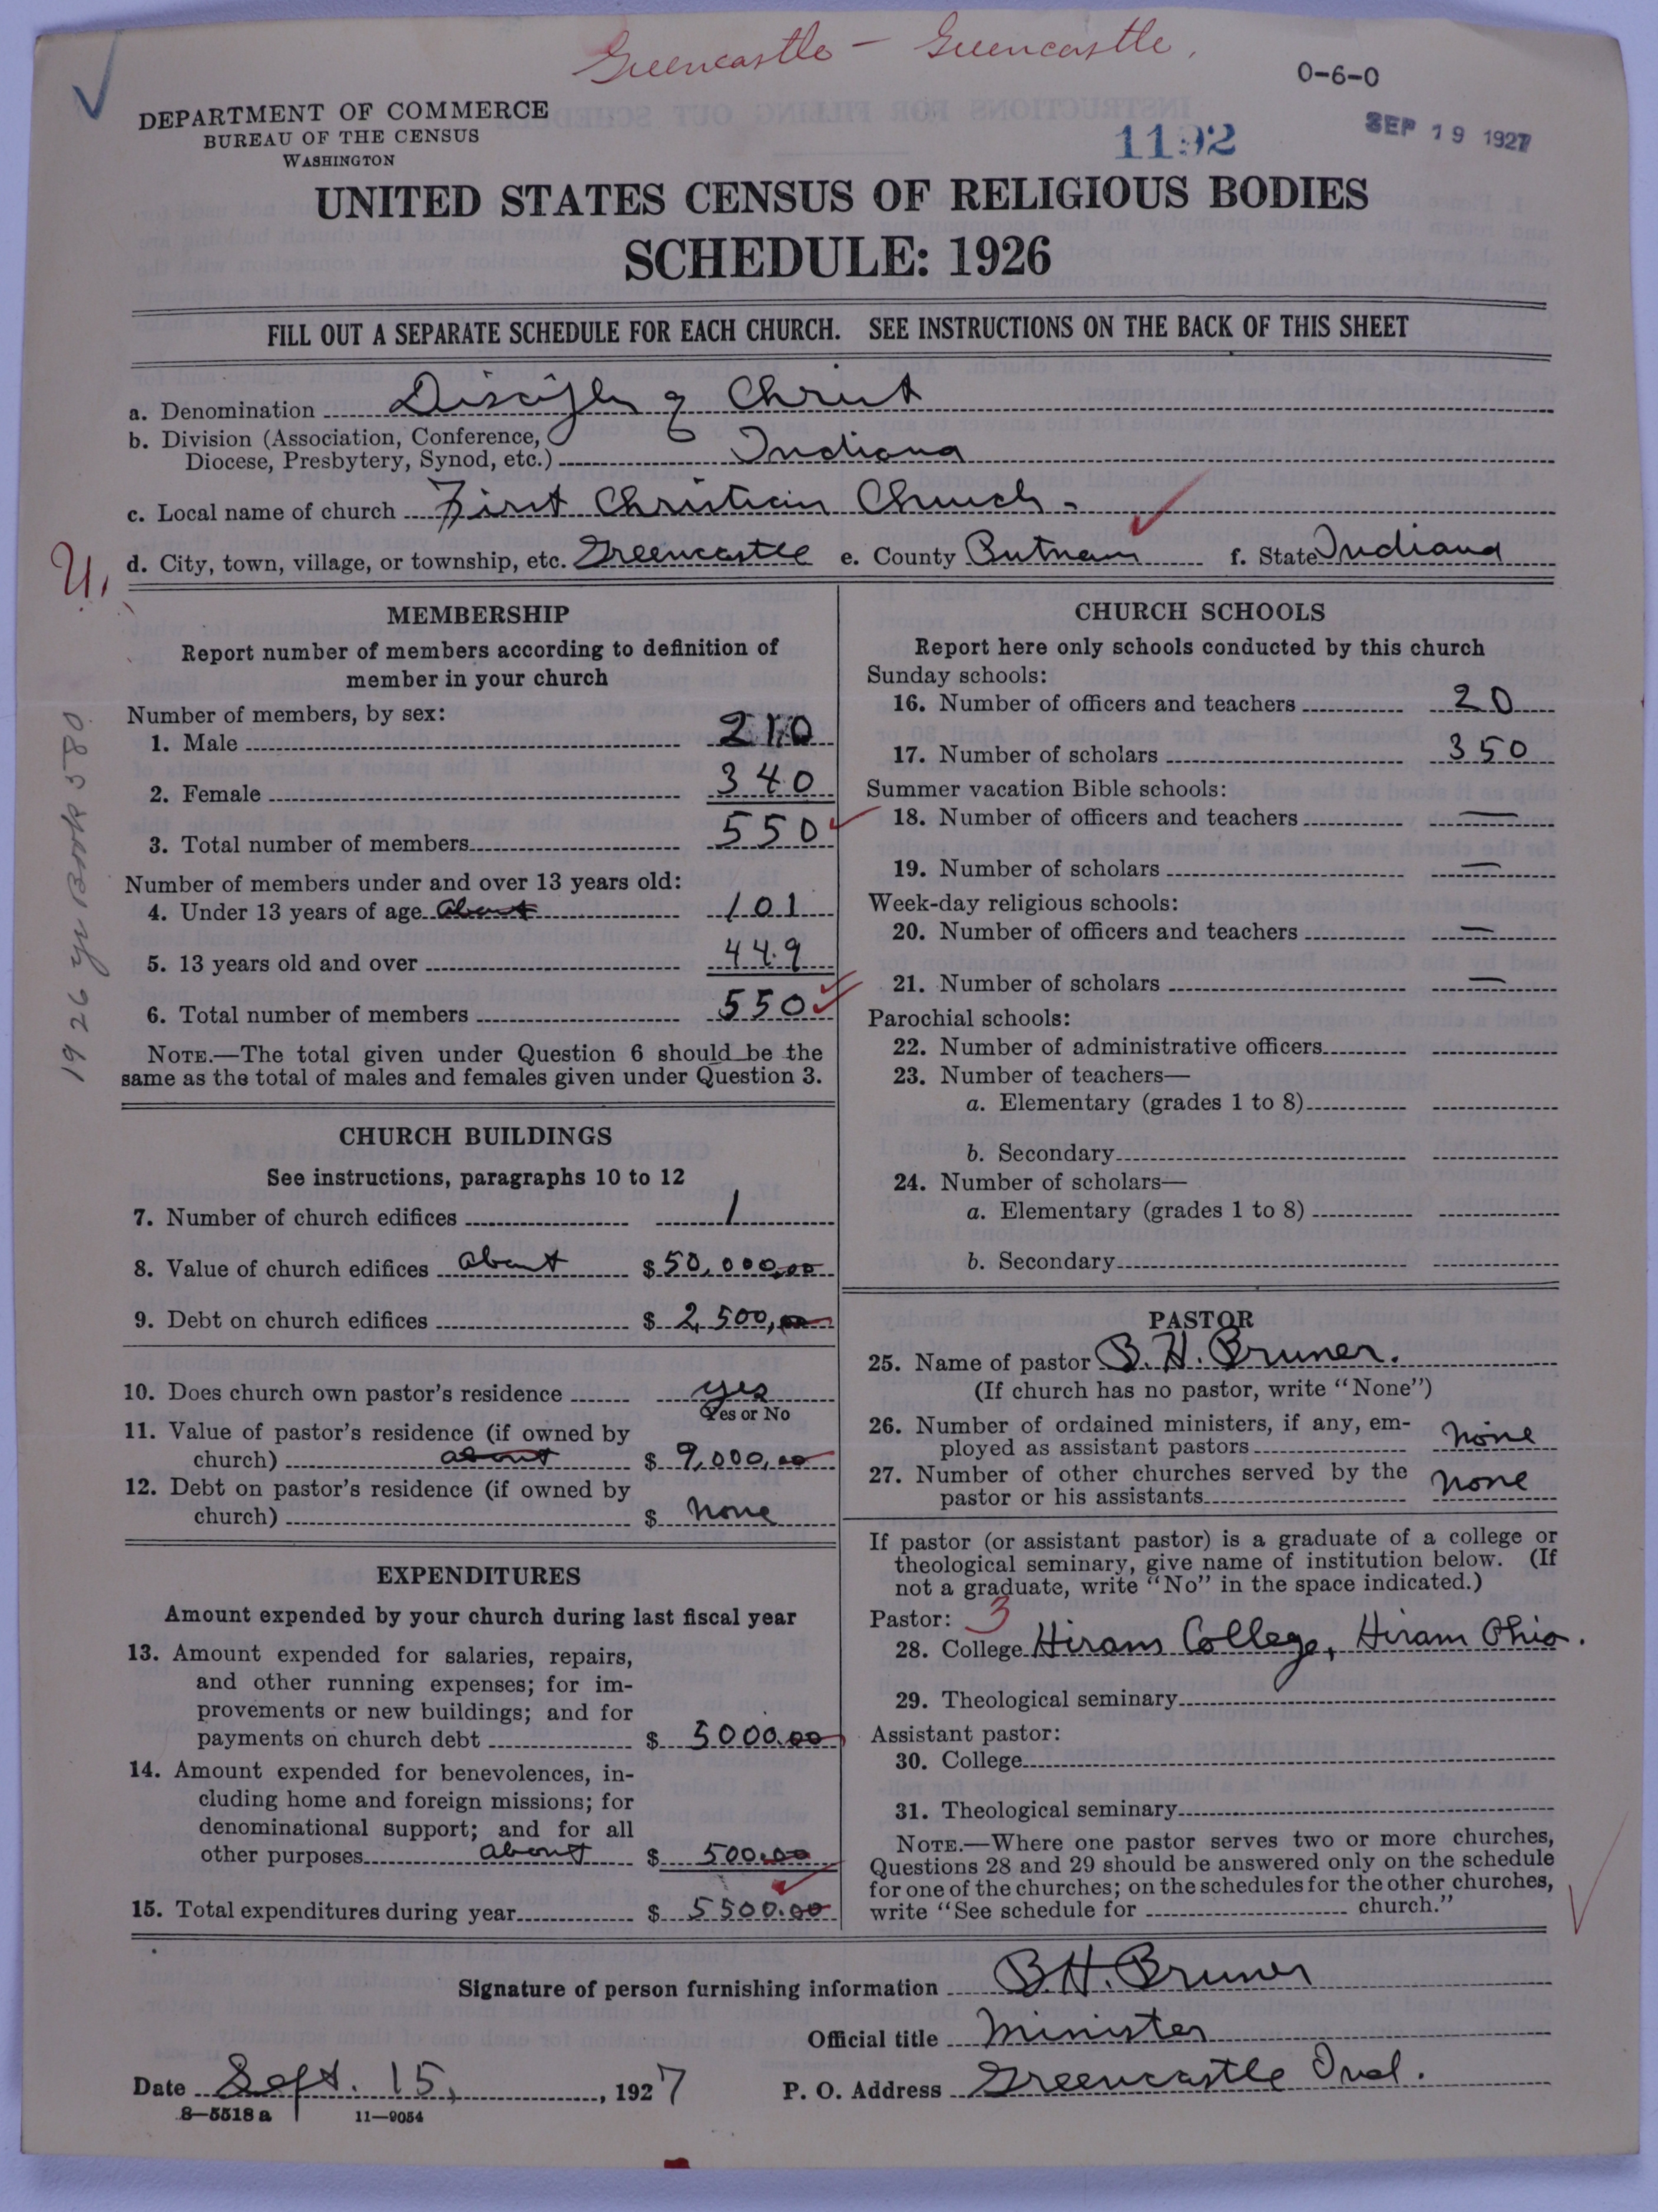 Greencastle – Greencastle.
0-6-0
DEPARTMENT OF COMMERCE
BUREAU OF THE CENSUS
WASHINGTON
1192
SEP 19 1927
UNITED STATES CENSUS OF RELIGIOUS BODIES
SCHEDULE: 1926
FILL OUT A SEPARATE SCHEDULE FOR EACH CHURCH. SEE INSTRUCTIONS ON THE BACK OF THIS SHEET
a. Denomination Disciples of Christ
b. Division (Association, Conference,
Diocese, Presbytery, Synod, etc.) Indiana
c. Local name of church First Christian Church -
d. City, town, village, or township, etc. Greencastle e. County Putnam f. State Indiana
U.
1926 yr Book 580
MEMBERSHIP
Report number of members according to definition of
member in your church
Number of members, by sex:
1. Male 210
2. Female 340
3. Total number of members 550
Number of members under and over 13 years old:
4. Under 13 years of age about 101
5. 13 years old and over 449
6. Total number of members 550
NOTE.—The total given under Question 6 should be the
same as the total of males and females given under Question 3.
CHURCH BUILDINGS
See instructions, paragraphs 10 to 12
7. Number of church edifices 1
8. Value of church edifices about $50,000,00
9. Debt on church edifices $ 2,500,00
10. Does church own pastor's residence yes
Yes or No
11. Value of pastor's residence (if owned by
church) about $ 9,000,00
12. Debt on pastor's residence (if owned by
church) $ none
EXPENDITURES
Amount expended by your church during last fiscal year
13. Amount expended for salaries, repairs,
and other running expenses; for im-
provements or new buildings; and for
payments on church debt $ 5000.00
14. Amount expended for benevolences, in-
cluding home and foreign missions; for
denominational support; and for all
other purposes about $ 500.00
15. Total expenditures during year $ 5500.00
CHURCH SCHOOLS
Report here only schools conducted by this church
Sunday schools:
16. Number of officers and teachers 20
17. Number of scholars 350
Summer vacation Bible schools:
18. Number of officers and teachers —
19. Number of scholars —
Week-day religious schools:
20. Number of officers and teachers —
21. Number of scholars —
Parochial schools:
22. Number of administrative officers
23. Number of teachers—
a. Elementary (grades 1 to 8)
b. Secondary
24. Number of scholars—
a. Elementary (grades 1 to 8)
b. Secondary
PASTOR
25. Name of pastor B. H. Bruner.
(If church has no pastor, write "None")
26. Number of ordained ministers, if any, em-
ployed as assistant pastors none
27. Number of other churches served by the
pastor or his assistants none
If pastor (or assistant pastor) is a graduate of a college or
theological seminary, give name of institution below. (If
not a graduate, write "No" in the space indicated.)
Pastor: 3
28. College Hiram College, Hiram Ohio.
29. Theological seminary
Assistant pastor:
30. College
31. Theological seminary
NOTE.—Where one pastor serves two or more churches,
Questions 28 and 29 should be answered only on the schedule
for one of the churches; on the schedules for the other churches,
write "See schedule for church."
Signature of person furnishing information B.H. Bruner
Official title Minister
Date Sept. 15, , 1927 P. O. Address Greencastle Ind.
8—5518 a 11—9054